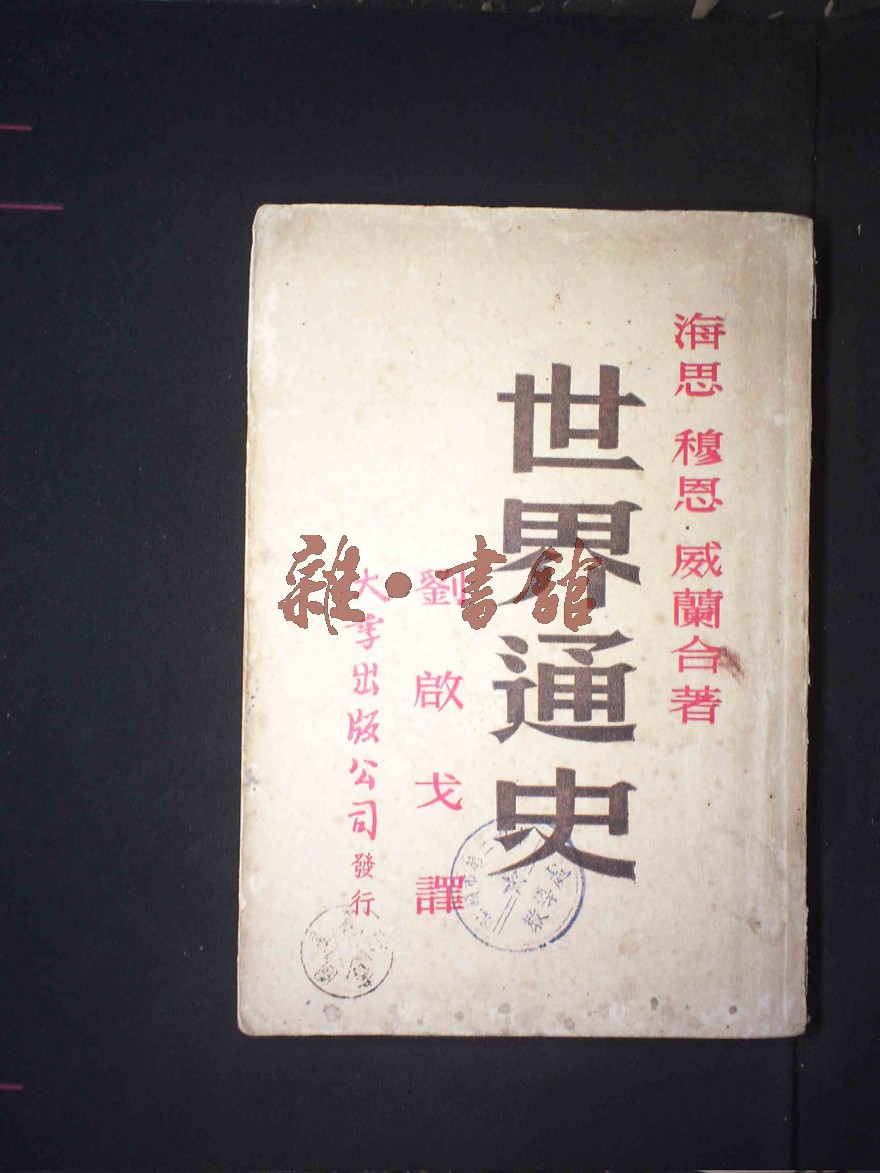 海思 穆恩 威蘭合著
世界通史
劉啟戈譯
大孚出版公司發行
雜·書館
教導處